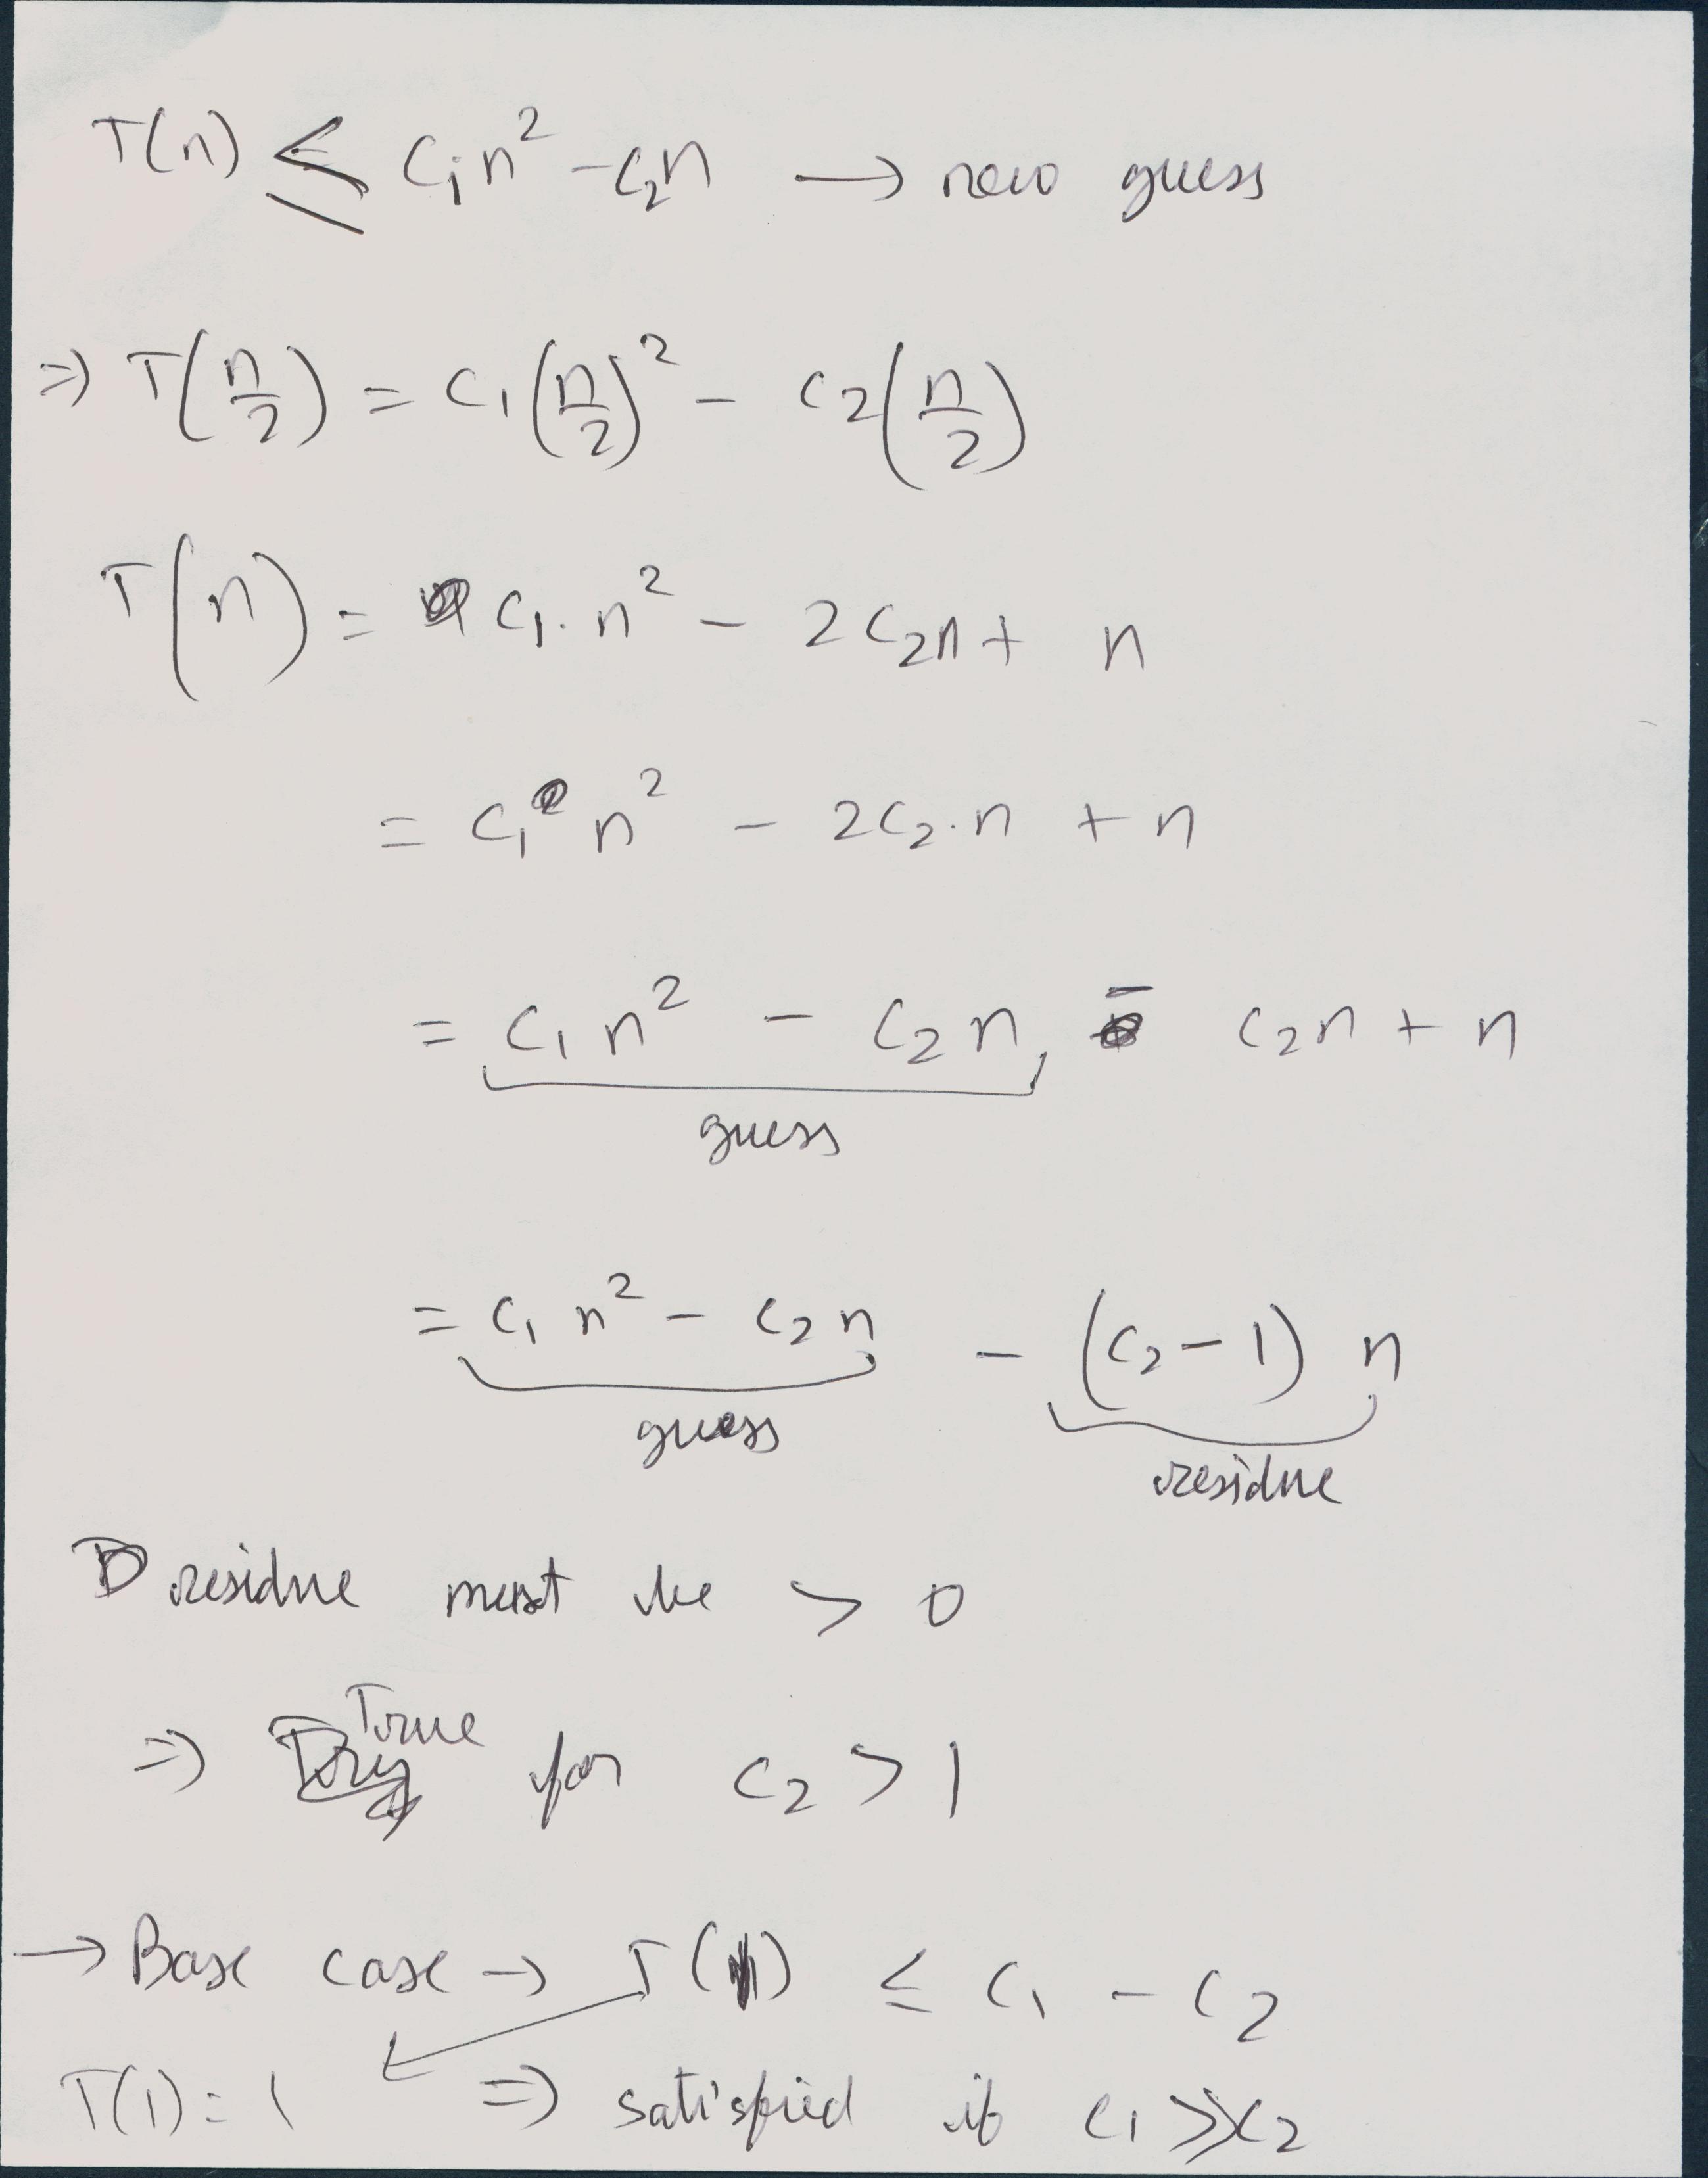 T(n) ≤ c₁n² - c₂n → new guess
⇒ T(n/2) = c₁(n/2)² - c₂(n/2)
T(n) = c₁.n² - 2c₂n + n
= c₁ n² - 2c₂.n + n
= c₁ n² - c₂ n - c₂n + n
guess
= c₁ n² - c₂ n - (c₂ - 1) n
guess residue
residue must be > 0
⇒ True for c₂ > 1
→ Base case → T(1) ≤ c₁ - c₂
T(1) = 1 ⇒ satisfied if c₁ >> c₂